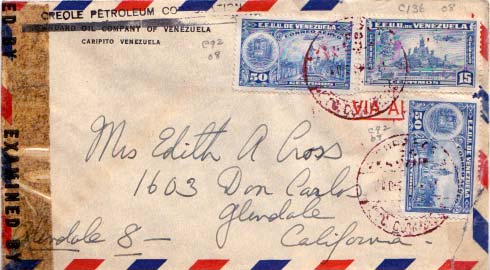 CREOLE PETROLEUM
STANDARD OIL COMPANY OF VENEZUELA
CARIPITO VENEZUELA
C92
08
C136 08
EE.UU. DE VENEZUELA
CORREO AEREO
50
CENTIMOS
EE.UU. DE VENEZUELA
15
CENTIMOS
VIA
C92
08
50
Mrs Edith A Cross
1603 Don Carlos
Glendale
California
Glendale 8
EXAMINED BY
ED BY